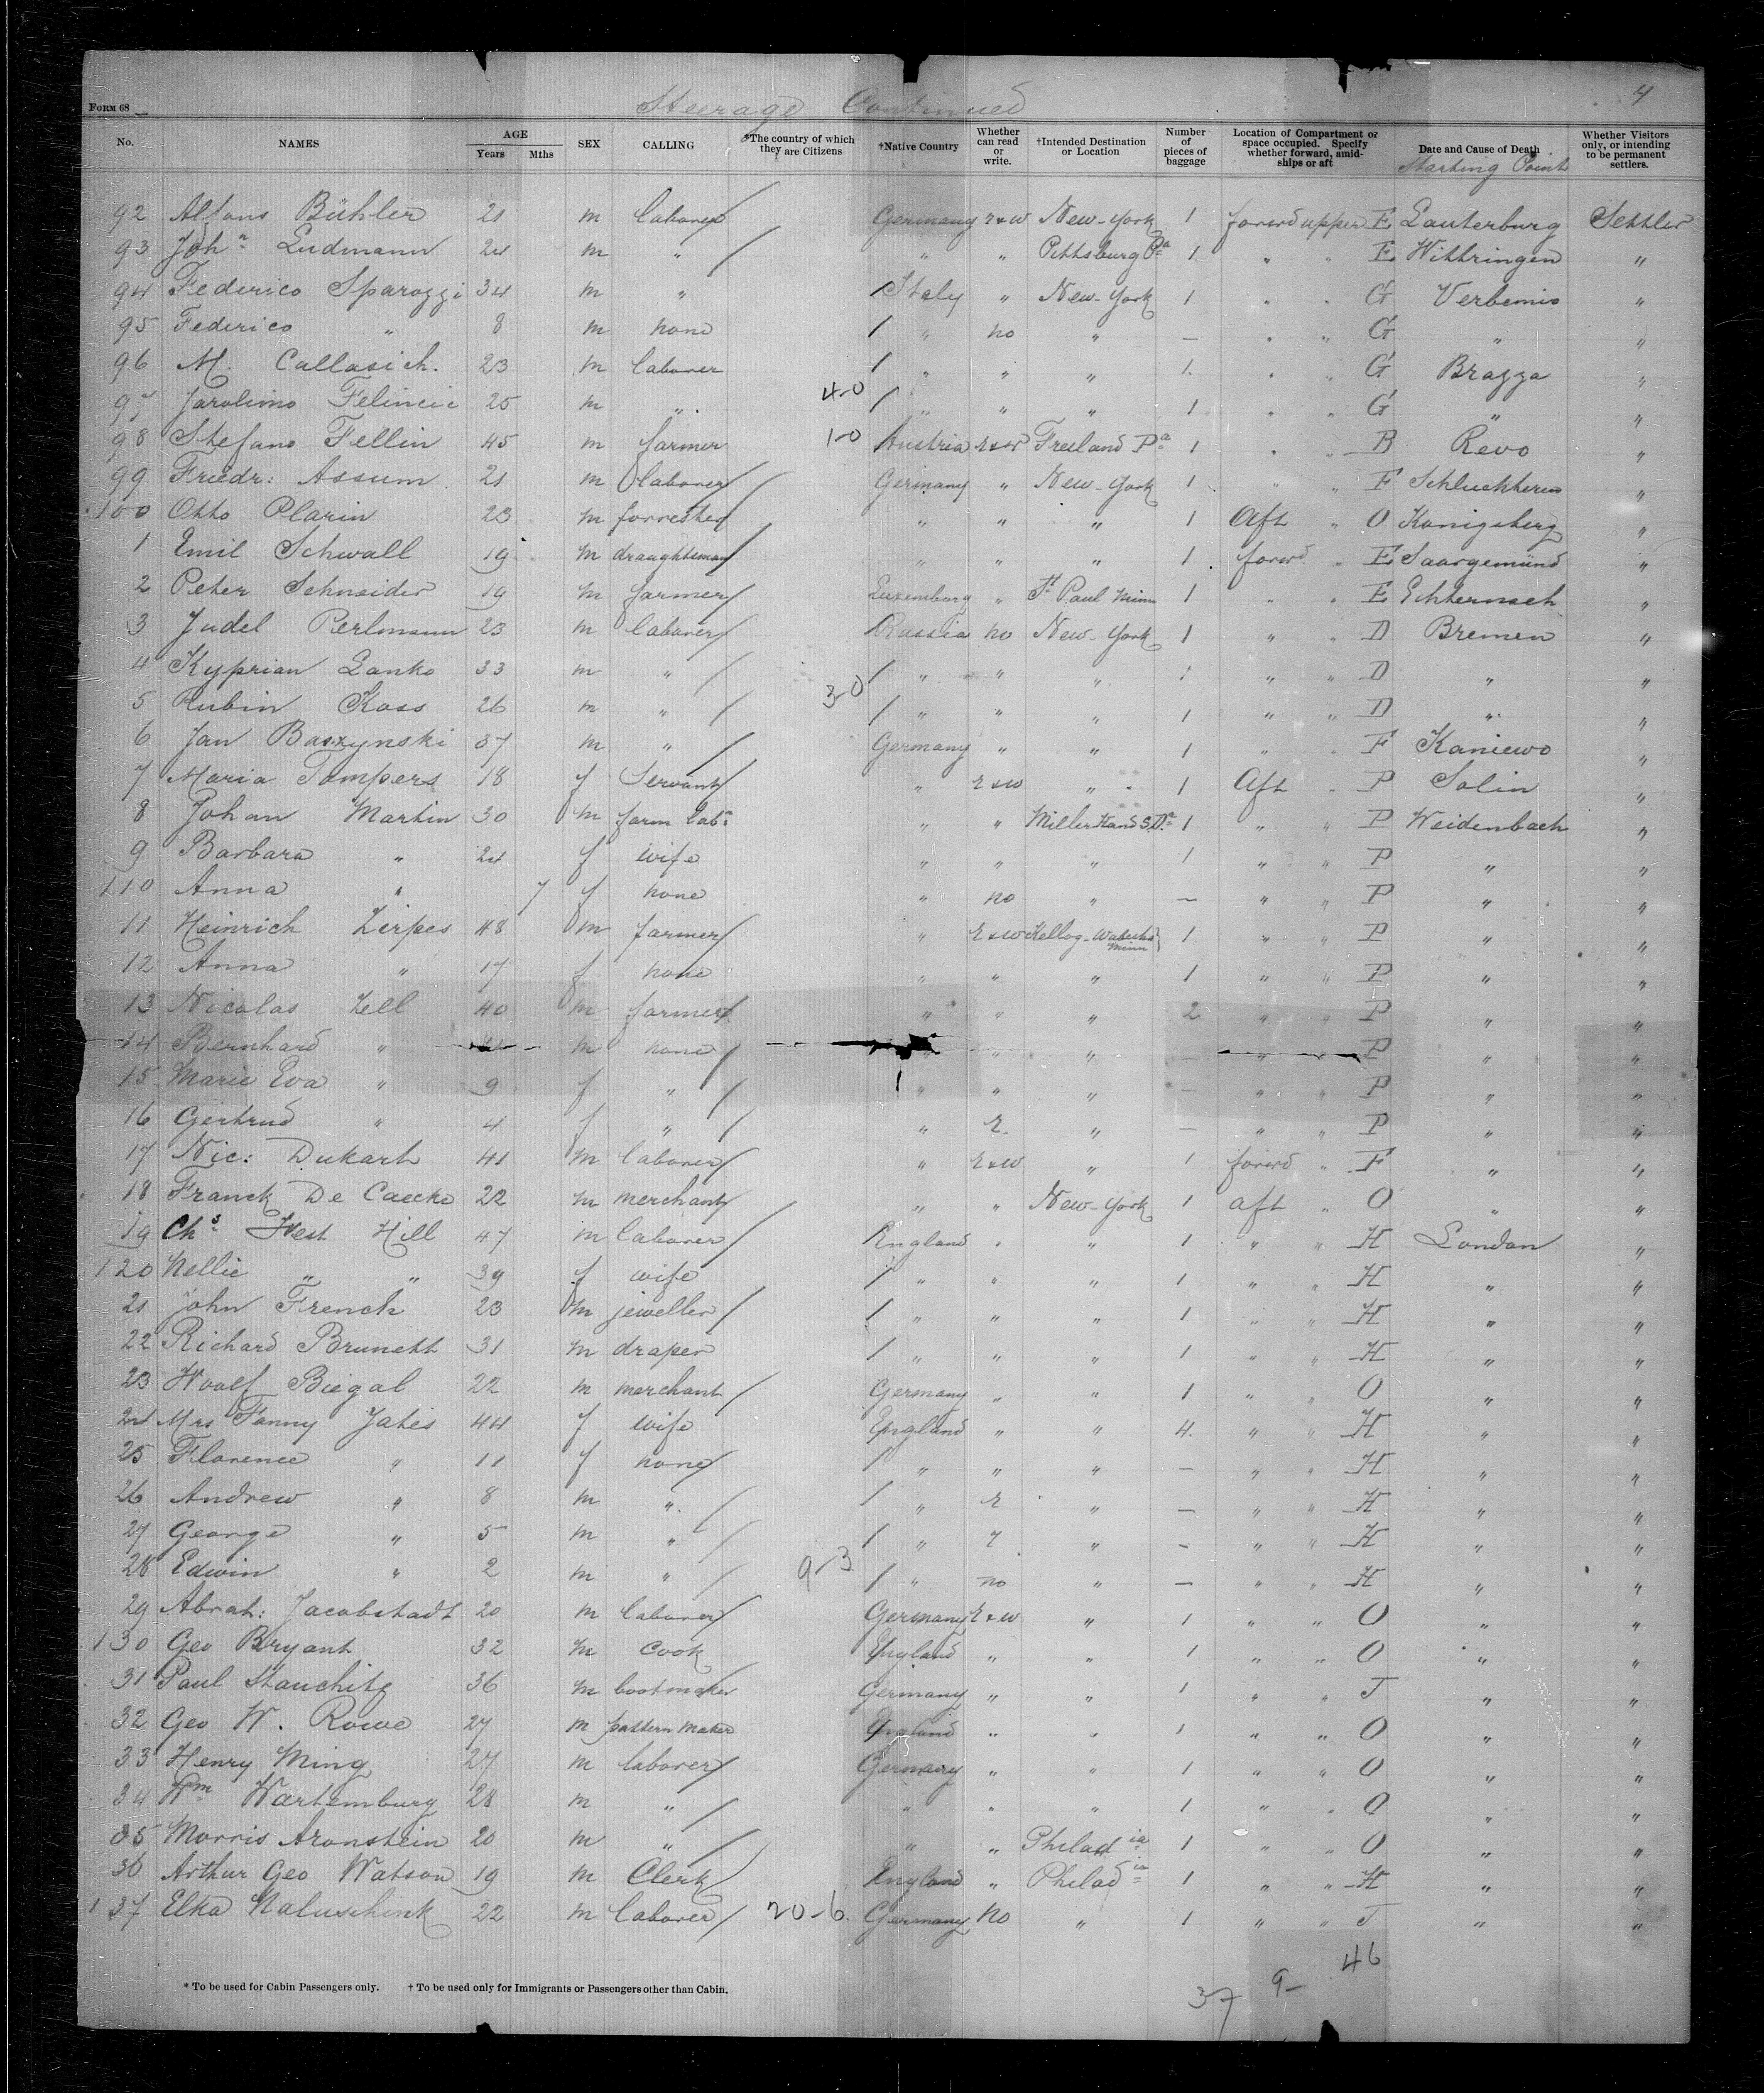 4
Form 68 Steerage Continued
No. NAMES AGE Years Mths SEX CALLING *The country of which they are Citizens †Native Country Whether can read or write. †Intended Destination or Location Number of pieces of baggage Location of Compartment or space occupied. Specify whether forward, amidships or aft Date and Cause of Death Starting Point Whether Visitors only, or intending to be permanent settlers.
92 Alfons Bühler 21 m laborer Germany r+w New-York 1 forwd upper E Lauterburg Settler
93 Joh n Ludmann 24 m " " " Pittsburg Pa 1 " " E Wittringen "
94 Federico Sparozzi 34 m " Italy " New-York 1 " " G "
95 Federico " 8 m none " no " — " " G " "
96 M. Callasich. 23 m laborer " " " 1 " " G Brazza "
97 Jarolimo Felincic 25 m " 4-0 " " " 1 " " G " "
98 Stefano Fellin 45 m farmer 1-0 Austria r+w Freeland Pa 1 " " B Revo "
99 Friedr: Assum 21 m laborer Germany " New-York 1 " " F "
100 Otto Plarin 23 m forrester " " " 1 Aft " O Konigsberg "
1 Emil Schwall 19 m draughtsman " " " 1 forwd " E Saargemünd "
2 Peter Schneider 19 m farmer Luxemburg " St Paul Minn 1 " " E Echternach "
3 Judel Perlmann 23 m laborer Russia no New-York 1 " " D Bremen "
4 Kyprian Lanko 33 m " " " " 1 " " D " "
5 Rubin Kass 26 m " 3-0 " " " 1 " " D " "
6 Jan Baszynski 37 m " Germany " " 1 " " F Kaniewo "
7 Maria Tompers 18 f Servant " r+w " 1 Aft " P Solin "
8 Johan Martin 30 m farm labr " " Miller Hand S.Da 1 " " P Weidenbach "
9 Barbara " 24 f wife " " " 1 " " P " "
110 Anna " 7 f none " no " — " " P " "
11 Heinrich Zirpes 48 m farmer " r+w Kellog-Wabasha Minn 1 " " P " "
12 Anna " 17 f none " " " 1 " " P " "
13 Nicolas Zell 40 m farmer " " " 2 " " P " "
14 Bernhard " m none " " " — " " P " "
15 Marie Eva " 9 f " " " " — " " P " "
16 Gertrud " 4 f " " r. " — " " P " "
17 Nic: Dukart 41 m laborer " r+w " 1 forwd " F " "
18 Franck De Caecke 22 m merchant " " New-York 1 aft " O " "
19 Chs West Hill 47 m laborer England " " 1 " " H London "
120 Nellie " " 39 f wife " " " 1 " " H " "
21 John French 23 m jeweller " " " 1 " " H " "
22 Richard Brunett 31 m draper " " " 1 " " H " "
23 Woolf Biegal 22 m merchant Germany " " 1 " " O " "
24 Mrs Fanny Yates 44 f wife England " " 4. " " H " "
25 Florence " 11 f none " " " — " " H " "
26 Andrew " 8 m " " r " — " " H " "
27 George " 5 m " " r " — " " H " "
28 Edwin " 2 m " 9-3 " no " — " " H " "
29 Abrah: Jacobstadt 20 m laborer Germany r+w " 1 " " O " "
130 Geo Bryant 32 m Cook England " " 1 " " O " "
31 Paul Stauchitz 36 m bootmaker Germany " " 1 " " J " "
32 Geo W. Rowe 27 m pattern maker England " " 1 " " O " "
33 Henry Ming 27 m laborer Germany " " 1 " " O " "
34 Wm Wartemburg 28 m " " " " 1 " " O " "
35 Morris Aronstein 20 m " " " Philadia 1 " " O " "
36 Arthur Geo Watson 19 m Clerk England " Philadia 1 " " H " "
137 Elka Naluschink 22 m laborer 20-6. Germany no " 1 " " J " "
46
37 9-
* To be used for Cabin Passengers only. † To be used only for Immigrants or Passengers other than Cabin.